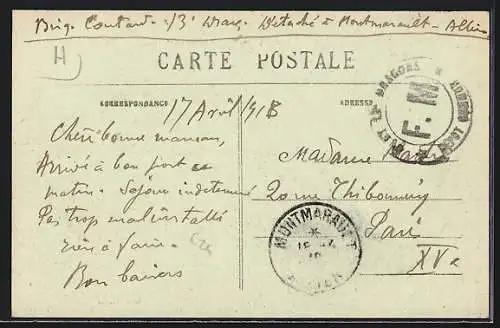 Brig. Coutard 13e Drag. Détaché à Montmarault - Allier
H
CARTE POSTALE
CORRESPONDANCE
ADRESSE
17 Avril 1918
Cherebonne maman,
Arrivé à bon port ce
matin. Séjour indeterminé
Pas trop mal installé
rien à faire.
Bons baisers
Madame
20 rue Thibouméry
Paris
XVe
DRAGONS
F. M
MONTMARAULT
ALLIER